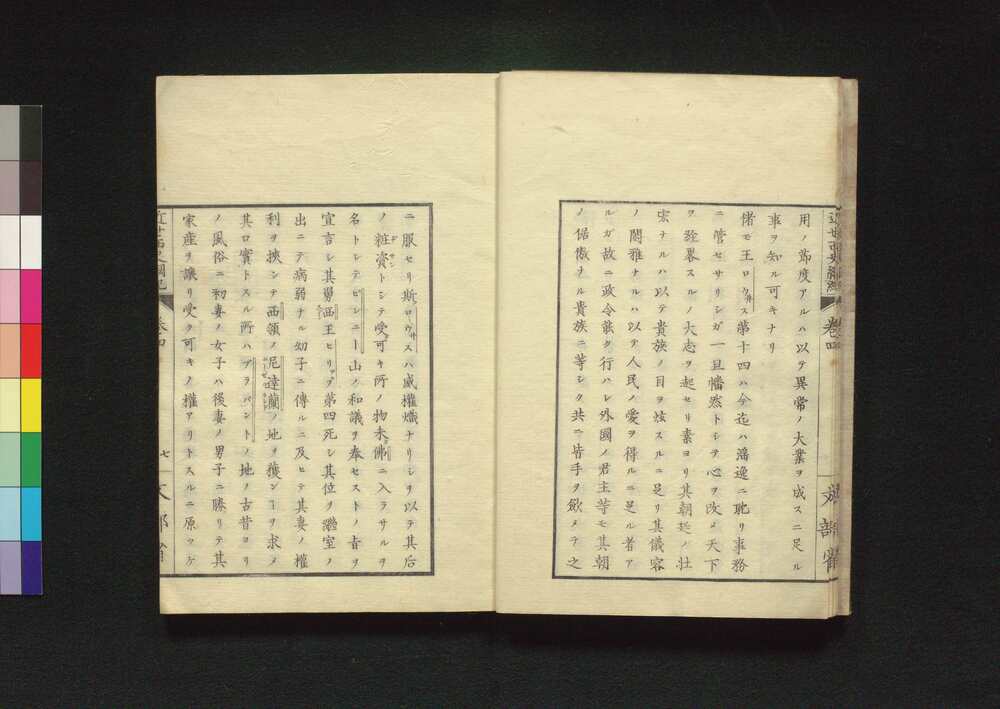 用ノ節度アルハ以テ異常ノ大業ヲ成スニ足ル
事ヲ知ル可キナリ
偖モ王ロウ井ス第十四ハ今迄ハ滛逸ニ耽リ事務
ニ管セサリシガ一旦幡然トシテ心ヲ改メ天下
ヲ經畧スルノ大志ヲ起セリ素ヨリ其朝廷ノ壮
宏ナルハ以テ貴族ノ目ヲ炫スルニ足リ其儀容
ノ閑雅ナルハ以テ人民ノ愛ヲ得ルニ足ル者ア
ルガ故ニ政令能ク行ハレ外國ノ君主等モ其朝
ノ倨傲ナル貴族ニ等シク共ニ皆手ヲ歛メテ之
卷四
ニ服セリ斯ロウ井スハ威權熾ナリシヲ以テ其后
ノ粧資トシテ受可キ所ノ物未佛ニ入ラサルヲ
名トシテピレニー山ノ和議ヲ奉セストノ㫖ヲ
宣言シ其舅西王ヒリップ第四死シ其位ヲ繼室ノ
出ニテ病弱ナル幼子ニ傳ルニ及ヒテ其妻ノ權
利ヲ挾ンテ西領ノ尼達蘭ノ地ヲ獲ンヿヲ求メ
其口實トスル所ハブラバントノ地ノ古昔ヨリ
ノ風俗ニ初妻ノ女子ハ後妻ノ男子ニ勝リテ其
家産ヲ讓リ受ク可キノ權アリトスルニ原ツケ
卷四
七
文部省